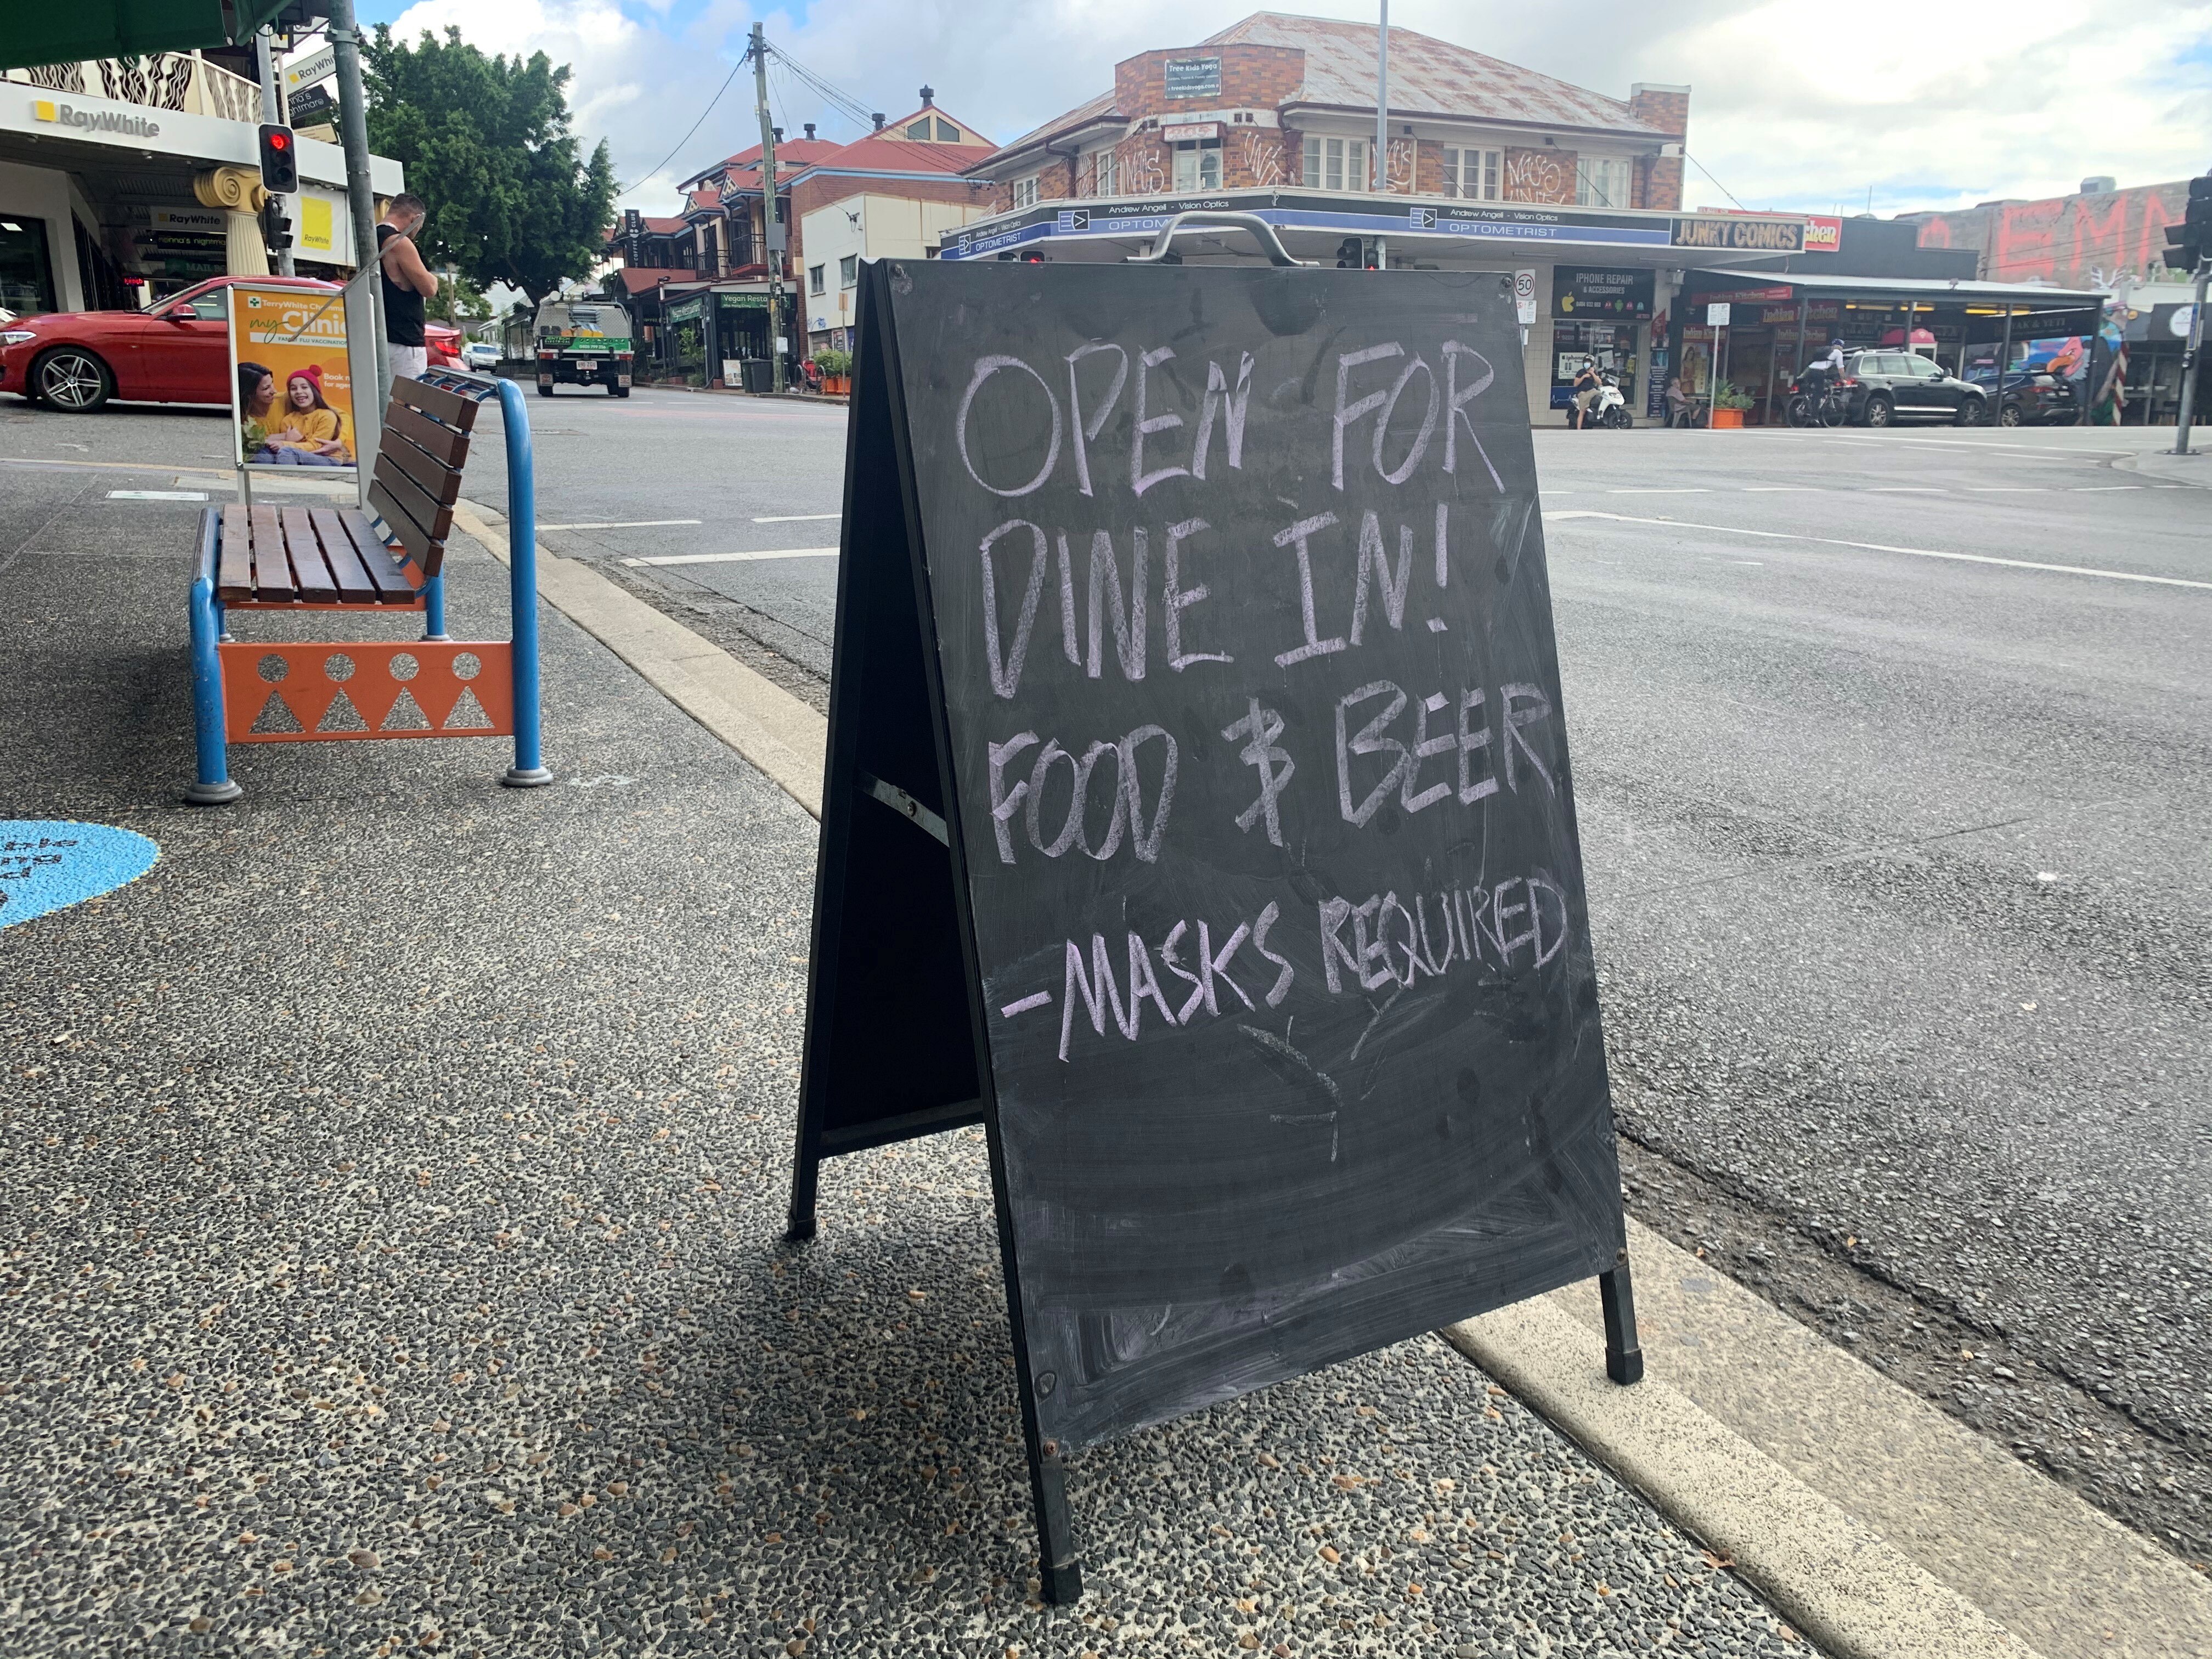 OPEN FOR
DINE IN!
FOOD & BEER
-MASKS REQUIRED
RayWhite
RayWhite
RayWhite
RayWhite
TerryWhite
my Clinic
FAMILY FLU VACCINATION
Vegan Resta
Tree Kids Yoga
Andrew Angell - Vision Optics
OPTOMETRIST
Andrew Angell - Vision Optics
OPTOMETRIST
JUNKY COMICS
IPHONE REPAIR
& ACCESSORIES
50
Indian Kitchen